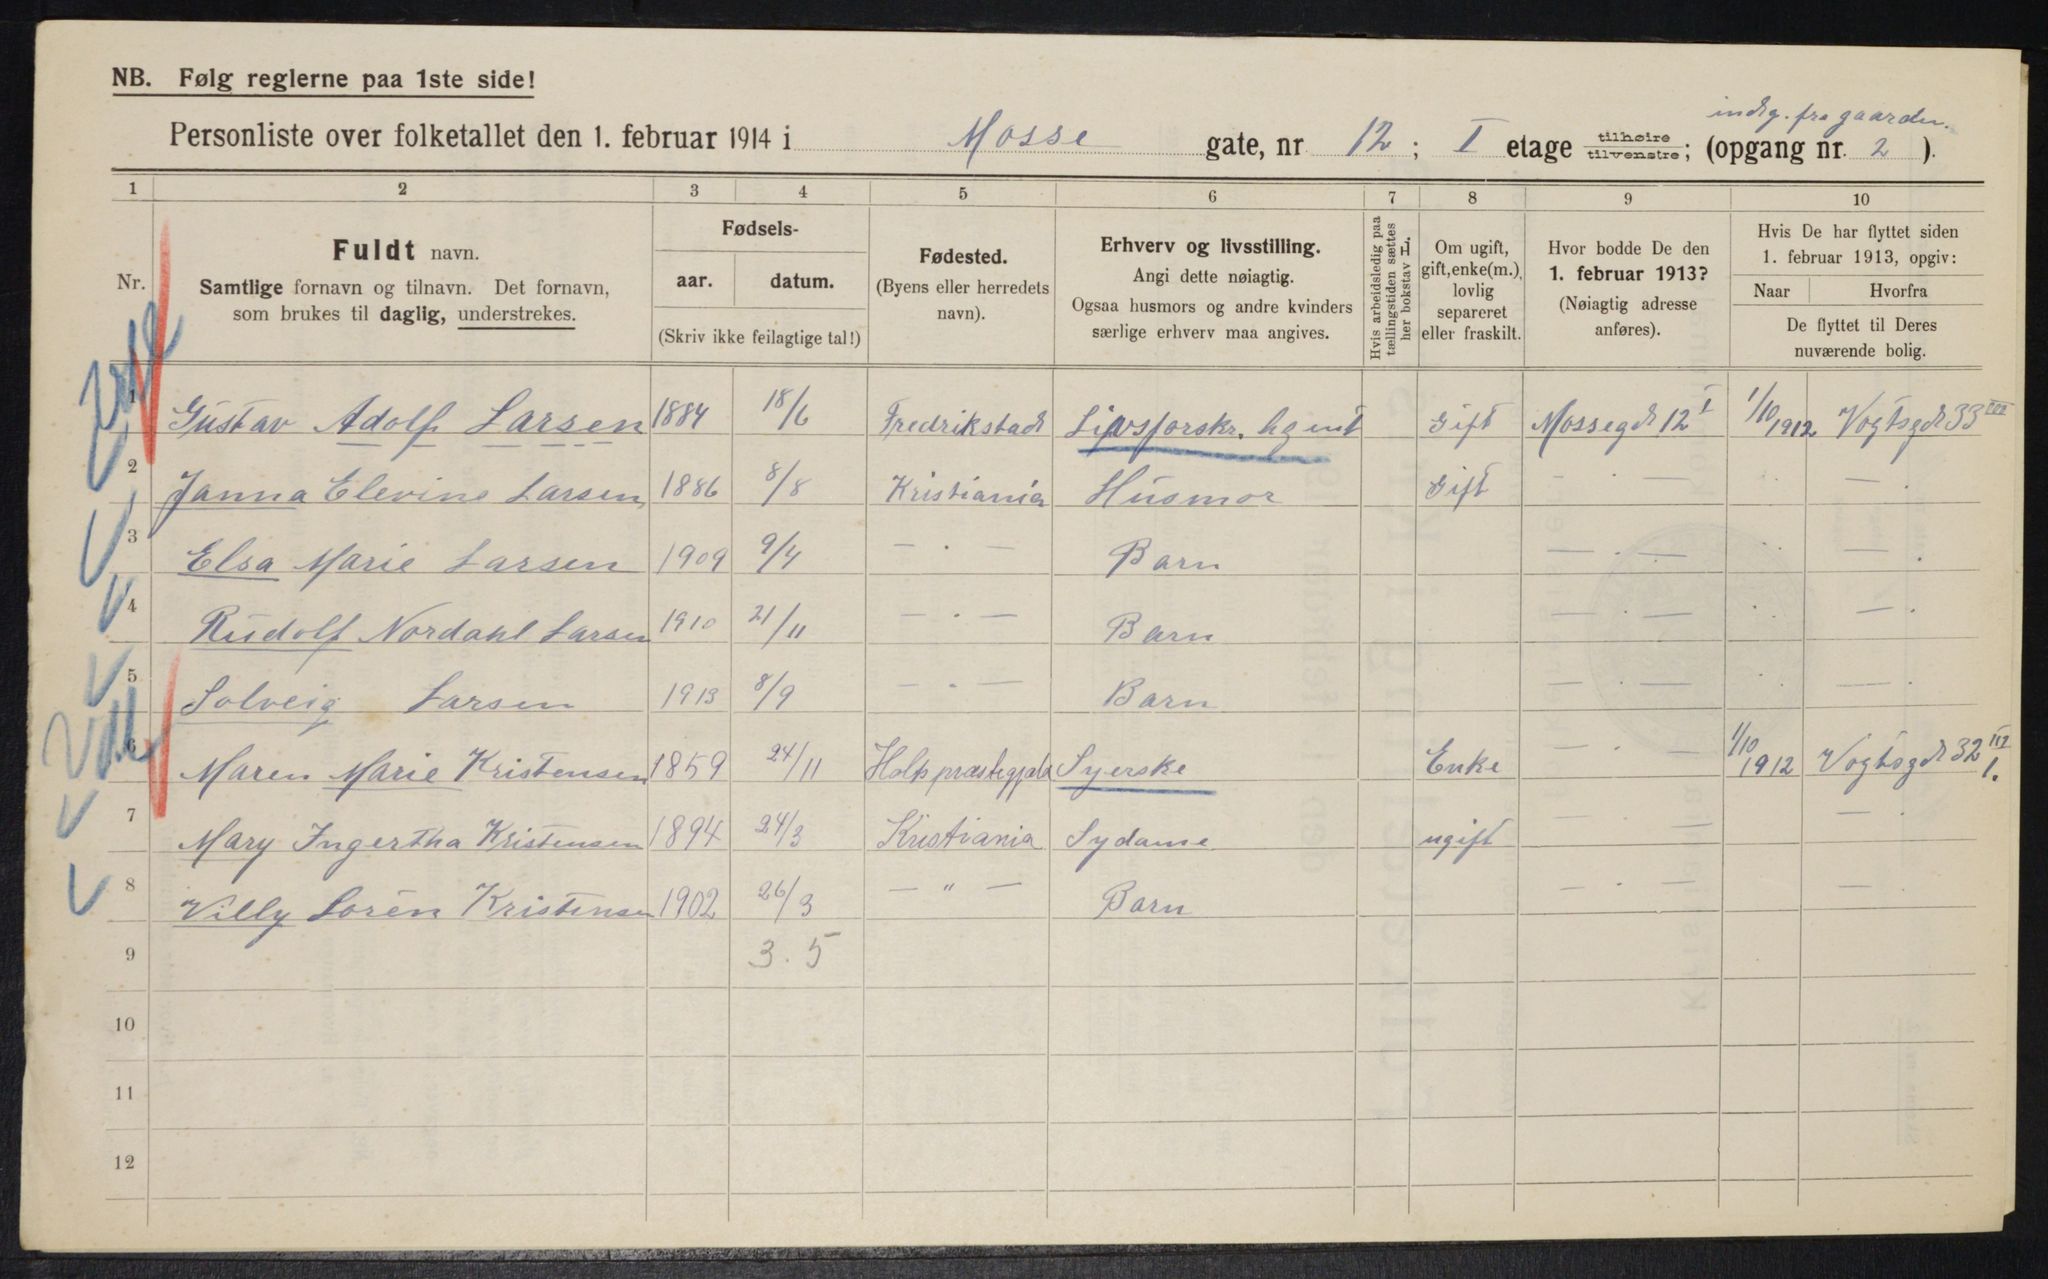 NB. Følg reglerne paa 1ste side!
indg. fra gaarden.
Personliste over folketallet den 1. februar 1914 i Mosse gate, nr 12; I etage tilhøire tilvenstre; (opgang nr. 2).
1 2 3 4 5 6 7 8 9 10
Nr.
Fuldt navn.
Samtlige fornavn og tilnavn. Det fornavn,
som brukes til daglig, understrekes.
Fødsels-
aar. datum.
(Skriv ikke feilagtige tal!)
Fødested.
(Byens eller herredets
navn).
Erhverv og livsstilling.
Angi dette nøiagtig.
Ogsaa husmors og andre kvinders
særlige erhverv maa angives.
Hvis arbeidsledig paa
tællingstiden sættes
her bokstav H.
Om ugift,
gift, enke(m.),
lovlig
separeret
eller fraskilt.
Hvor bodde De den
1. februar 1913?
(Nøiagtig adresse
anføres).
Hvis De har flyttet siden
1. februar 1913, opgiv:
Naar Hvorfra
De flyttet til Deres
nuværende bolig.
1 Gustav Adolf Larsen 1884 18/6 Fredrikstad Livsforskr. Agent Gift Mossegd 12 I 1/10 1912 Vogtsgd 33 III
2 Janna Elevine Larsen 1886 8/8 Kristiania Husmor Gift — . — . — .
3 Elsa Marie Larsen 1909 9/4 — . — Barn — . — — .
4 Rudolf Nordahl Larsen 1910 21/11 — . — Barn — . — — .
5 Solveig Larsen 1913 8/9 — . — Barn — . — — .
6 Maren Marie Kristensen 1859 24/11 Syerske Enke — . — 1/10 1912 Vogtsgd 32 III 1.
7 Mary Ingertha Kristensen 1894 24/3 Kristiania Sydame ugift — . — —
8 Villy Sorén Kristensen 1902 26/3 — " — Barn — . — —
9 3.5
10
11
12